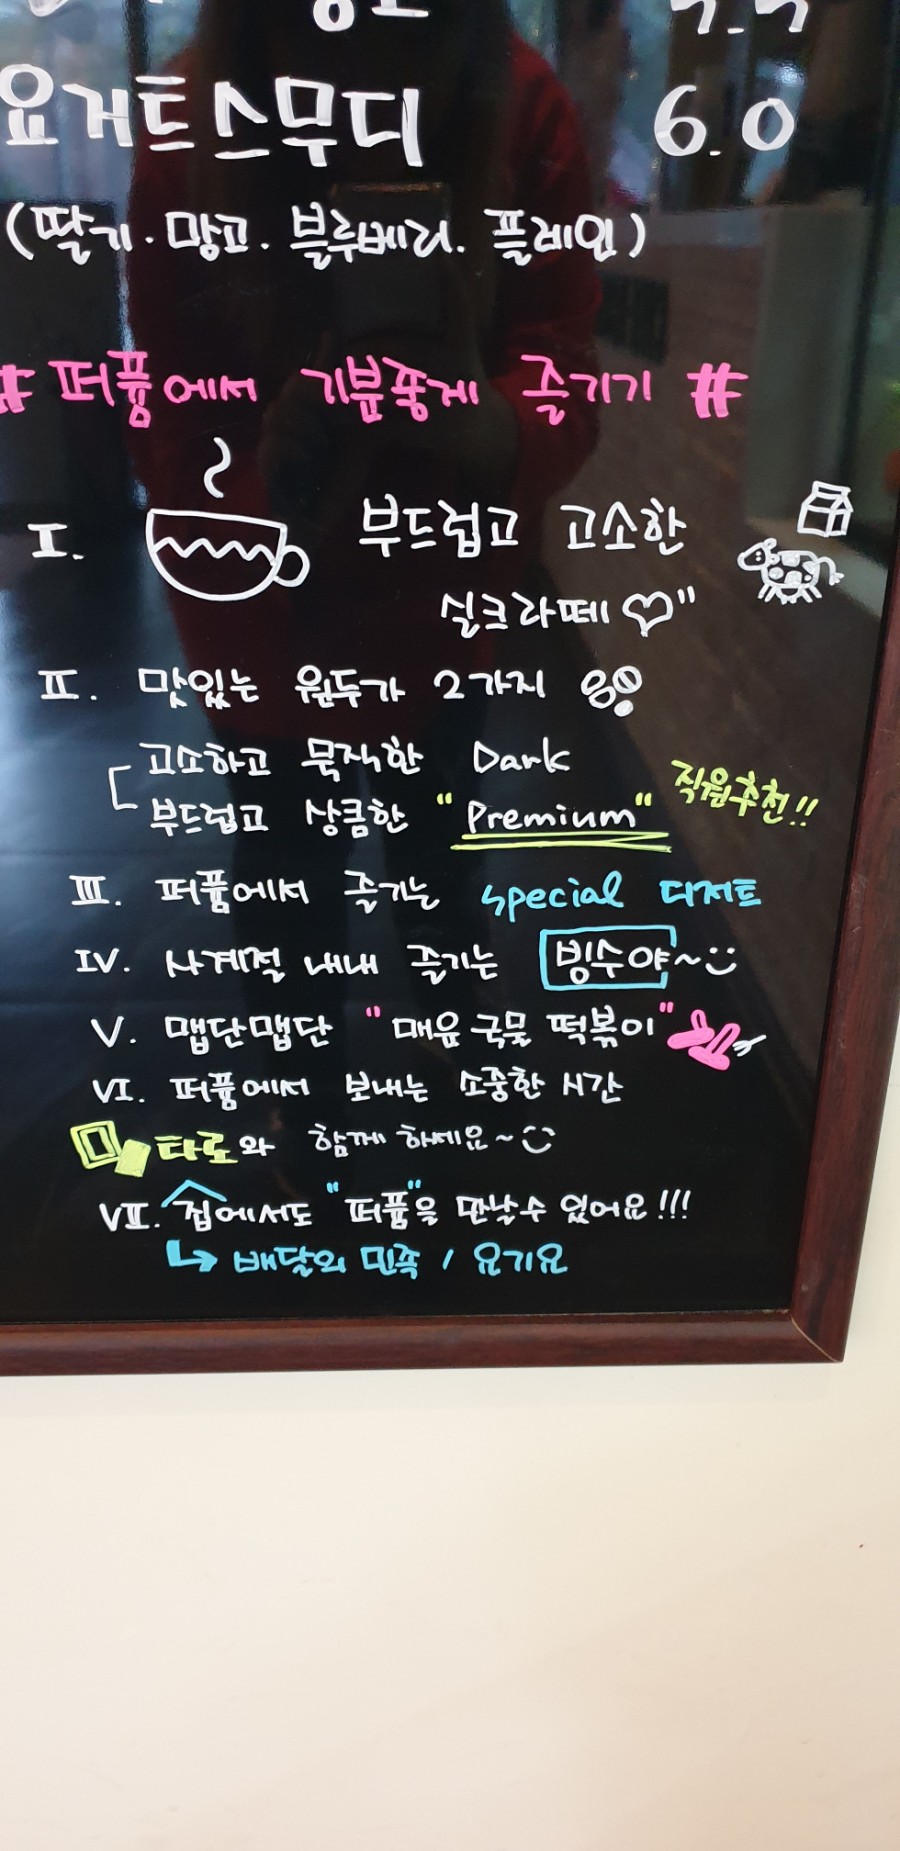 요거트스무디 6.0
(딸기. 망고. 블루베리. 플레인)
# 퍼품에서 기분좋게 즐기기 #
I. 부드럽고 고소한
실크라떼♡"
II. 맛있는 원두가 2가지
고소하고 묵직한 Dark
부드럽고 상큼한 "Premium" 직원추천!!
III. 퍼품에서 즐기는 special 디저트
IV. 사계절 내내 즐기는 빙수야~
V. 맵단맵단 "매운 국물 떡볶이"
VI. 퍼품에서 보내는 소중한 시간
타로와 함께 하세요~
VII. 집에서도 "퍼품"을 만날수 있어요!!!
↳ 배달의 민족 / 요기요